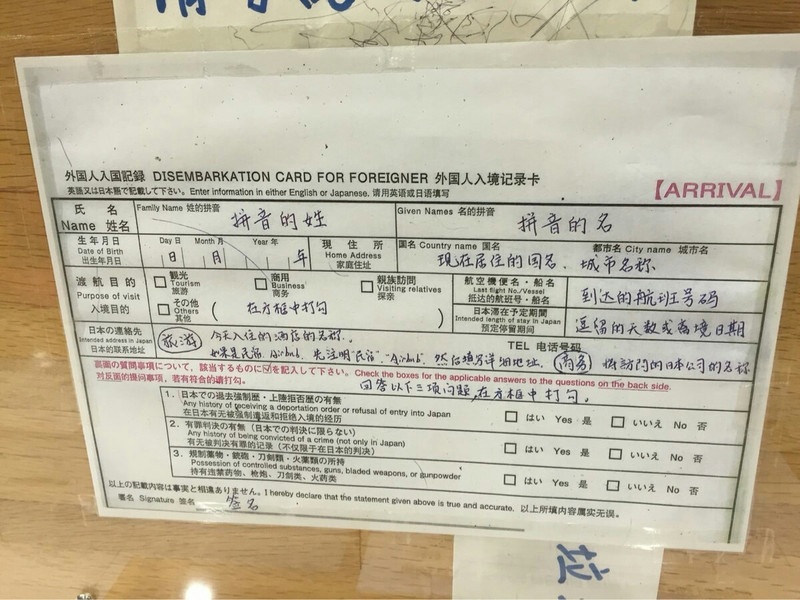 外国人入国記録 DISEMBARKATION CARD FOR FOREIGNER 外国人入境记录卡
英語又は日本語で記載して下さい。Enter information in either English or Japanese. 请用英语或日语填写
【ARRIVAL】
氏 名
Name 姓名
Family Name 姓的拼音
拼音的姓
Given Names 名的拼音
拼音的名
生年月日
Date of Birth
出生年月日
Day 日 Month 月 Year 年
日 月 年
現 住 所
Home Address
家庭住址
国名 Country name 国名
都市名 City name 城市名
现在居住的国名、城市名称
渡航目的
Purpose of visit
入境目的
観光
Tourism
旅游
商用
Business
商务
親族訪問
Visiting relatives
探亲
その他
Others
其他
( 在方框中打勾 )
航空機便名・船名
Last flight No./Vessel
抵达的航班号・船名
到达的航班号码
日本滞在予定期間
Intended length of stay in Japan
预定停留期间
逗留的天数或离境日期
日本の連絡先
Intended address in Japan
日本的联系地址
TEL 电话号码
旅游 今天入住的酒店的名称.
如果是民宿, Airbnb, 先注明"民宿","Airbnb", 然后填写详细地址.
商务 访问的日本公司的名称
裏面の質問事項について、該当するものに☑を記入して下さい。Check the boxes for the applicable answers to the questions on the back side.
对反面的提问事项，若有符合的请打勾。
回答以下三项问题,在方框中打勾。
1. 日本での退去強制歴・上陸拒否歴の有無
Any history of receiving a deportation order or refusal of entry into Japan
在日本有无被强制遣返和拒绝入境的经历
□ はい Yes 是 □ いいえ No 否
2. 有罪判決の有無（日本での判決に限らない）
Any history of being convicted of a crime (not only in Japan)
有无被判决有罪的记录（不仅限于在日本的判决）
□ はい Yes 是 □ いいえ No 否
3. 規制薬物・銃砲・刀剣類・火薬類の所持
Possession of controlled substances, guns, bladed weapons, or gunpowder
持有违禁药物、枪炮、刀剑类、火药类
□ はい Yes 是 □ いいえ No 否
以上の記載内容は事実と相違ありません。I hereby declare that the statement given above is true and accurate. 以上所填内容属实无误。
署名 Signature 签名 签名